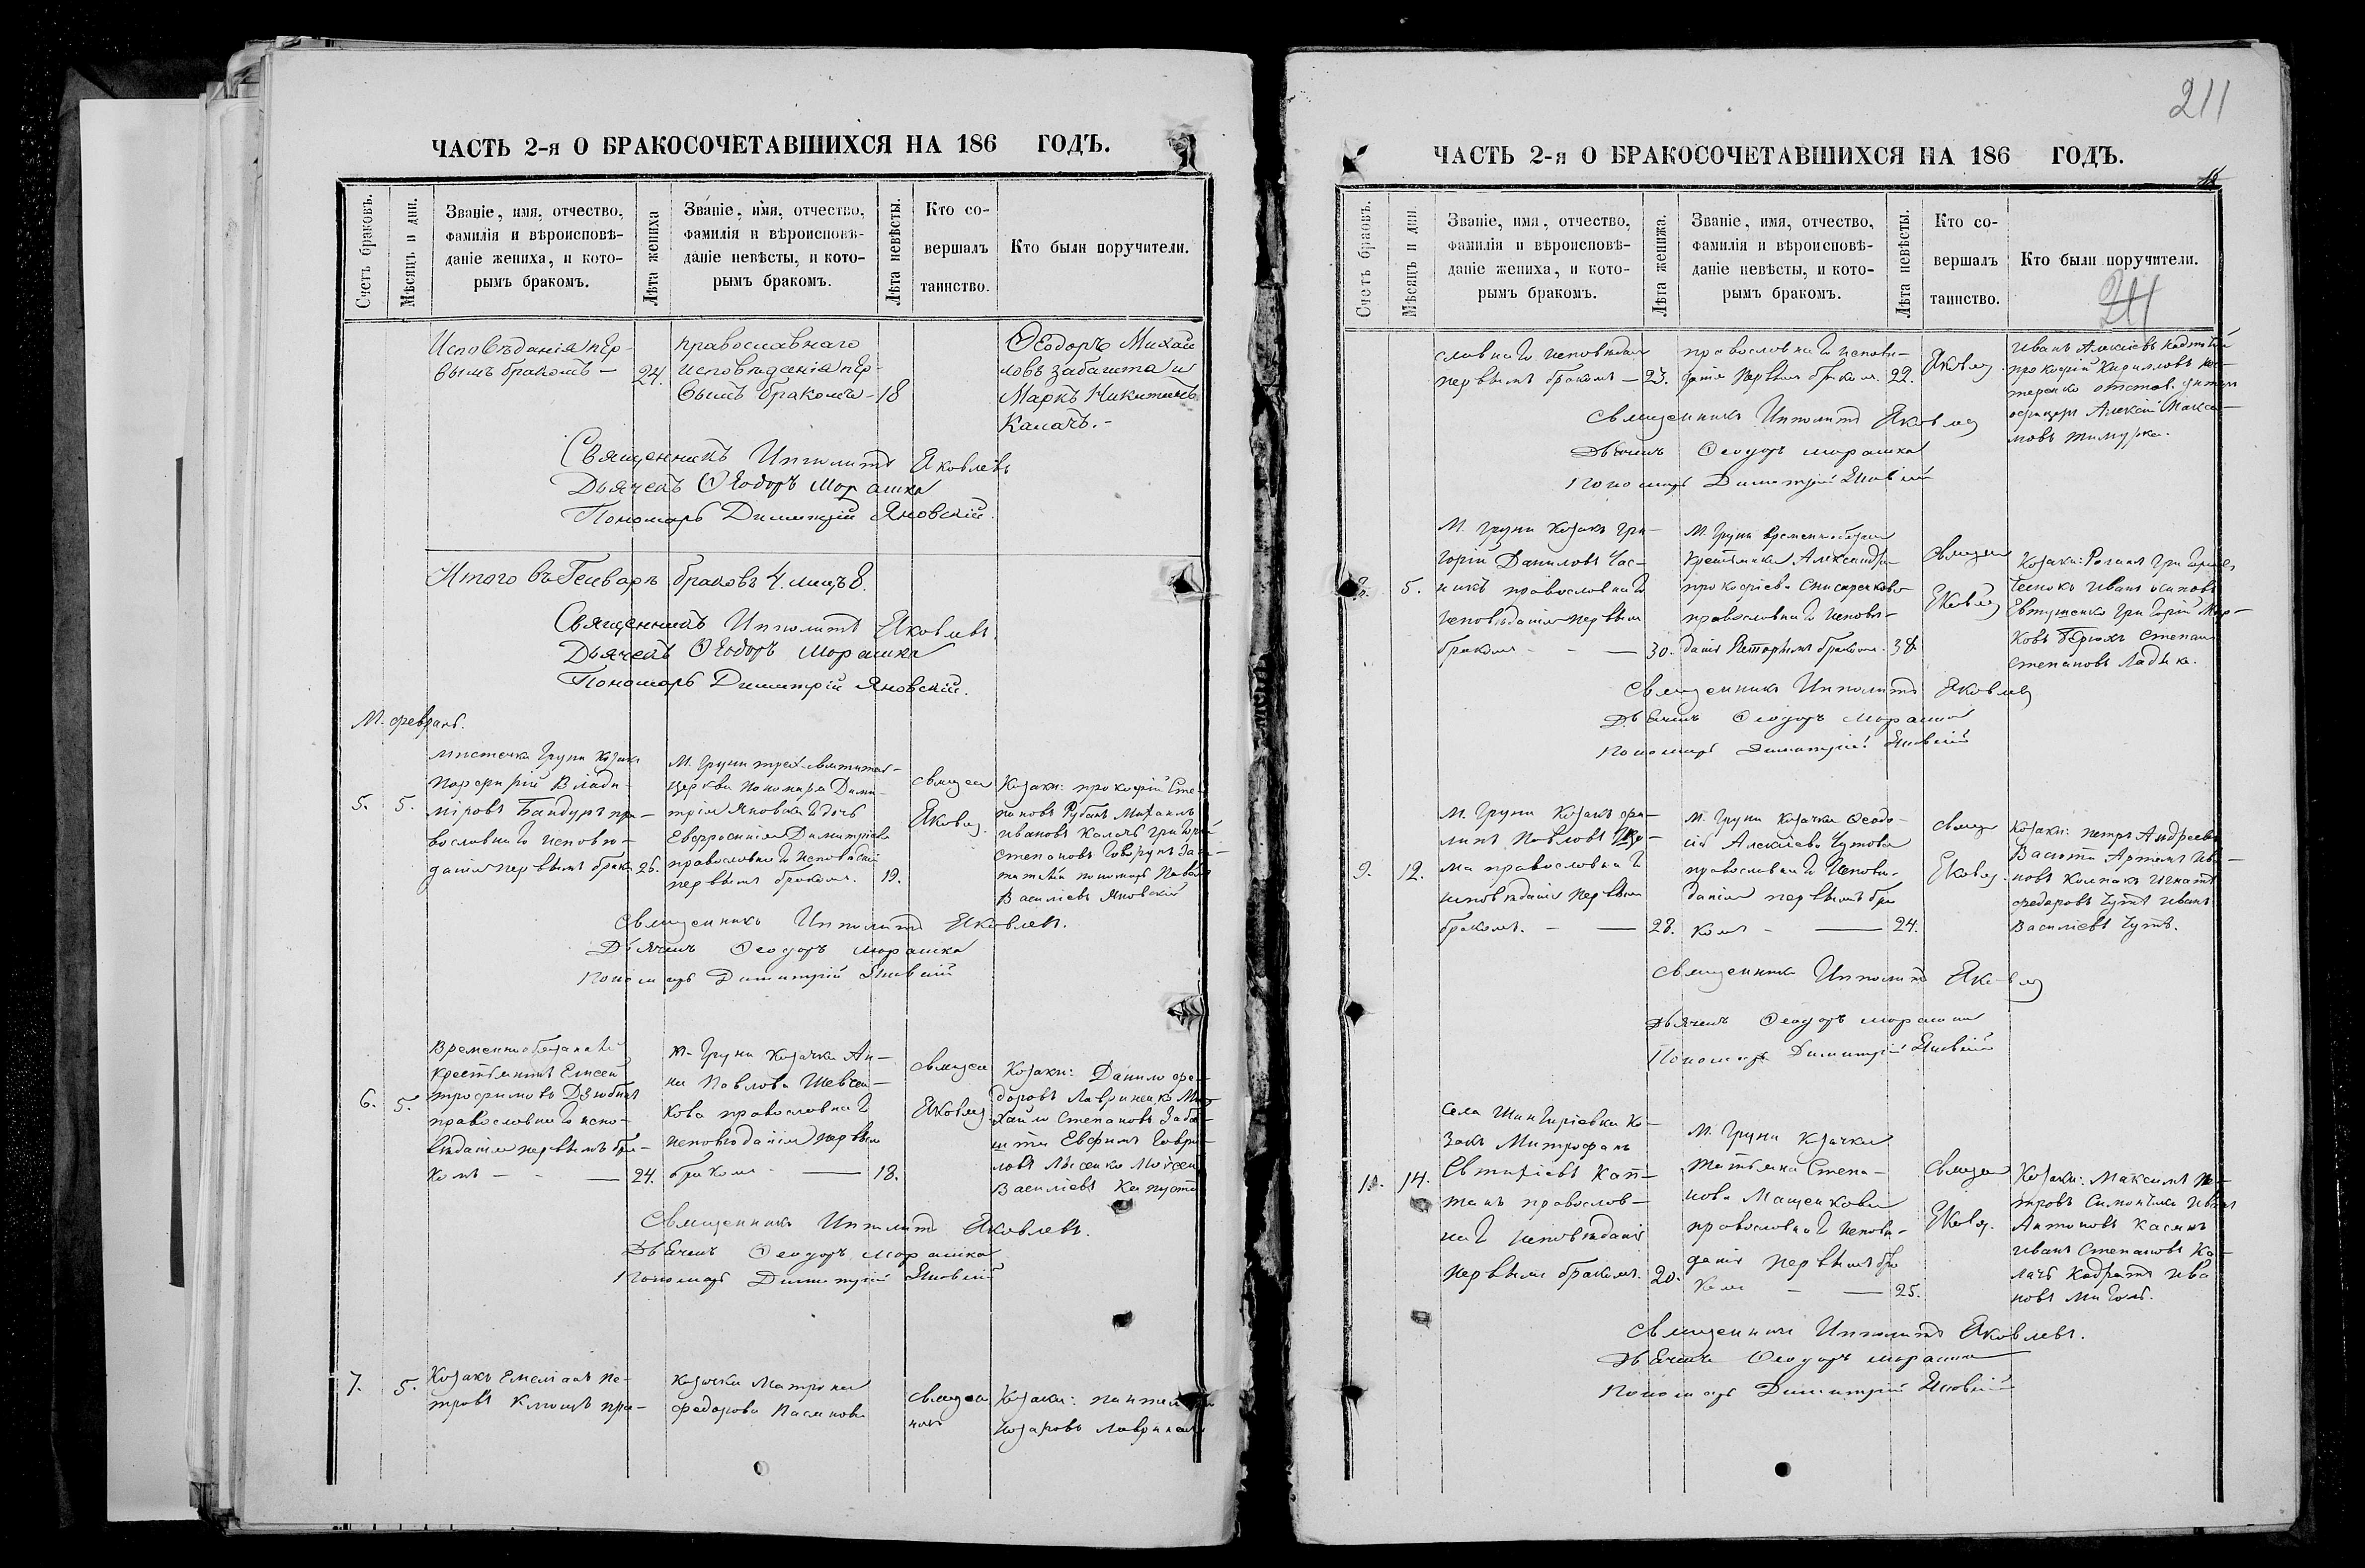 ЧАСТЬ 2-я О БРАКОСОЧЕТАВШИХСЯ НА 186 ГОДЪ.
Счетъ браковъ.
Мѣсяцъ и дни.
Званіе, имя, отчество,
фамилія и вѣроисповѣ-
даніе жениха, и кото-
рымъ бракомъ.
Лѣта жениха
Званіе, имя, отчество,
фамилія и вѣроисповѣ-
даніе невѣсты, и кото-
рымъ бракомъ.
Лѣта невѣсты.
Кто со-
вершалъ
таинство.
Кто были поручители.
Исповѣданія пер-
вымъ бракомъ —
24.
православнаго
исповѣданія пер-
вымъ бракомъ -
18
Ѳеодоръ Михай
ловъ Забашта и
Маркъ Никитинъ
Калачъ.-
Священникъ Ипполитъ Яковлевъ
Дьячекъ Ѳеодоръ Морашка
Пономарь Димитрій Яновскій.
Итого въ Генварѣ браковъ 4. лицъ 8.
Священникъ Ипполитъ Яковлевъ.
Дьячекъ Ѳеодоръ Морашка
Пономарь Димитрій Яновскій.
М. февраль.
5.
5.
Мѣстечка Груни козакъ
Порфирій Влади-
міровъ Бандуръ пра-
вославнаго исповѣ-
данія первымъ брак.
26.
М. Груни
церкви пономаря Дими-
трія Яновскаго дочь
Евфросинія Димитріева
православнаго исповѣданія
первымъ бракомъ.
19.
Священ
Яковлев.
Козаки: Прокофій Сте-
пановъ Рубанъ Михаилъ
Ивановъ Калачъ Григорій
Степановъ Говорунъ
пономарь Павелъ
Василіевъ Яновскій
Священникъ Ипполитъ Яковлевъ.
Дьячекъ Ѳеодоръ Морашка
Пономарь Димитрій Яновскій
6.
5.
Временнообязанный
крестьянинъ Елисей
Трофимовъ Дзюбанъ
православнаго испо-
вѣданія первымъ бра-
комъ —
24.
М. Груни козачка Ан-
на Павлова Шевчен-
кова православнаго
исповѣданія первым
бракомъ —
18.
Священ
Яковлев
Козаки: Данило Фе-
доровъ Лавриненко Ми-
хайло Степановъ Заба-
шта Евфимъ Гаври-
ловъ Лысенко Моѵсей
Василіевъ Капуста
Священникъ Ипполитъ Яковлевъ.
Дьячекъ Ѳеодоръ Морашка
Пономарь Димитрій Яновскій
7.
5.
Козакъ Емеліанъ Пе-
тровъ Клюшъ пра-
Козачка Матрона
Федорова Касьянова
Священ
никъ
Козаки: Пантел
Назаровъ Лаврин
211
ЧАСТЬ 2-я О БРАКОСОЧЕТАВШИХСЯ НА 186 ГОДЪ.
Счетъ браковъ.
Мѣсяцъ и дни.
Званіе, имя, отчество,
фамилія и вѣроисповѣ-
даніе жениха, и кото-
рымъ бракомъ.
Лѣта жениха.
Званіе, имя, отчество,
фамилія и вѣроисповѣ-
даніе невѣсты, и кото-
рымъ бракомъ.
Лѣта невѣсты.
Кто со-
вершалъ
таинство.
Кто были поручители.
211
славнаго исповѣдан
первымъ бракомъ —
23.
православнаго исповѣ-
данія первым браком.
22.
Яковлев.
Иванъ Алексіевъ
Прокофій Кирилловъ Не-
стеренко отстав. унтеръ
офицеръ Алексій Макси-
мовъ Тимурка.
Священникъ Ипполитъ Яковлев
Дьячекъ Ѳеодоръ Морашка
Пономарь Димитрій Яновскій
8.
5.
М. Груни козакъ Гри-
горій Даниловъ Час-
никъ православнаго
исповѣданія первым
бракомъ —
30.
М. Груни временнообязан
крестьянка Александра
Прокофіева Снисаренкова
православнаго исповѣ-
данія вторымъ браком.
38.
Священ
Яковлев
Козаки: Романъ Григоріев
Чеснокъ Иванъ Осиповъ
Евтушенко Григорій Мар-
ковъ Бѣрюкъ Степанъ
Степановъ Ладыка.
Священникъ Ипполитъ Яковлев
Дьячекъ Ѳеодоръ Морашка
Пономарь Димитрій Яновскій
9.
12.
М. Груни козакъ Фи-
липъ Павловъ
православнаго
исповѣданія первым
бракомъ. —
28.
М. Груни козачка Ѳеодо-
сія Алексіева Чутова
православнаго исповѣ-
данія первымъ бра
комъ —
24.
Священ
Яковлев.
Козаки: Петръ Андреевъ
Васюта Артемъ Ива-
новъ Колпакъ Игнатъ
Федоровъ Чутъ Иванъ
Василіевъ Чутъ.
Священникъ Ипполитъ Яковлев
Дьячекъ Ѳеодоръ Морашка
Пономарь Димитрій Яновскій
10.
14.
Села Шингиріевки ко-
закъ Митрофанъ
Евтихіевъ Кап-
танъ православ-
наго исповѣданія
первымъ бракомъ.
20.
М. Груни козачка
Татьяна Степа-
нова Мащенкова
православнаго исповѣ-
данія первымъ бра
комъ —
25.
Священ
Яковлев.
Козаки: Максимъ Пе-
тровъ Иванъ
Антоновъ Касьянъ
Иванъ Степановъ Ка-
лачъ Кодратъ Ива
новъ
Священникъ Ипполитъ Яковлевъ.
Дьячекъ Ѳеодоръ Морашка
Пономарь Димитрій Яновскій